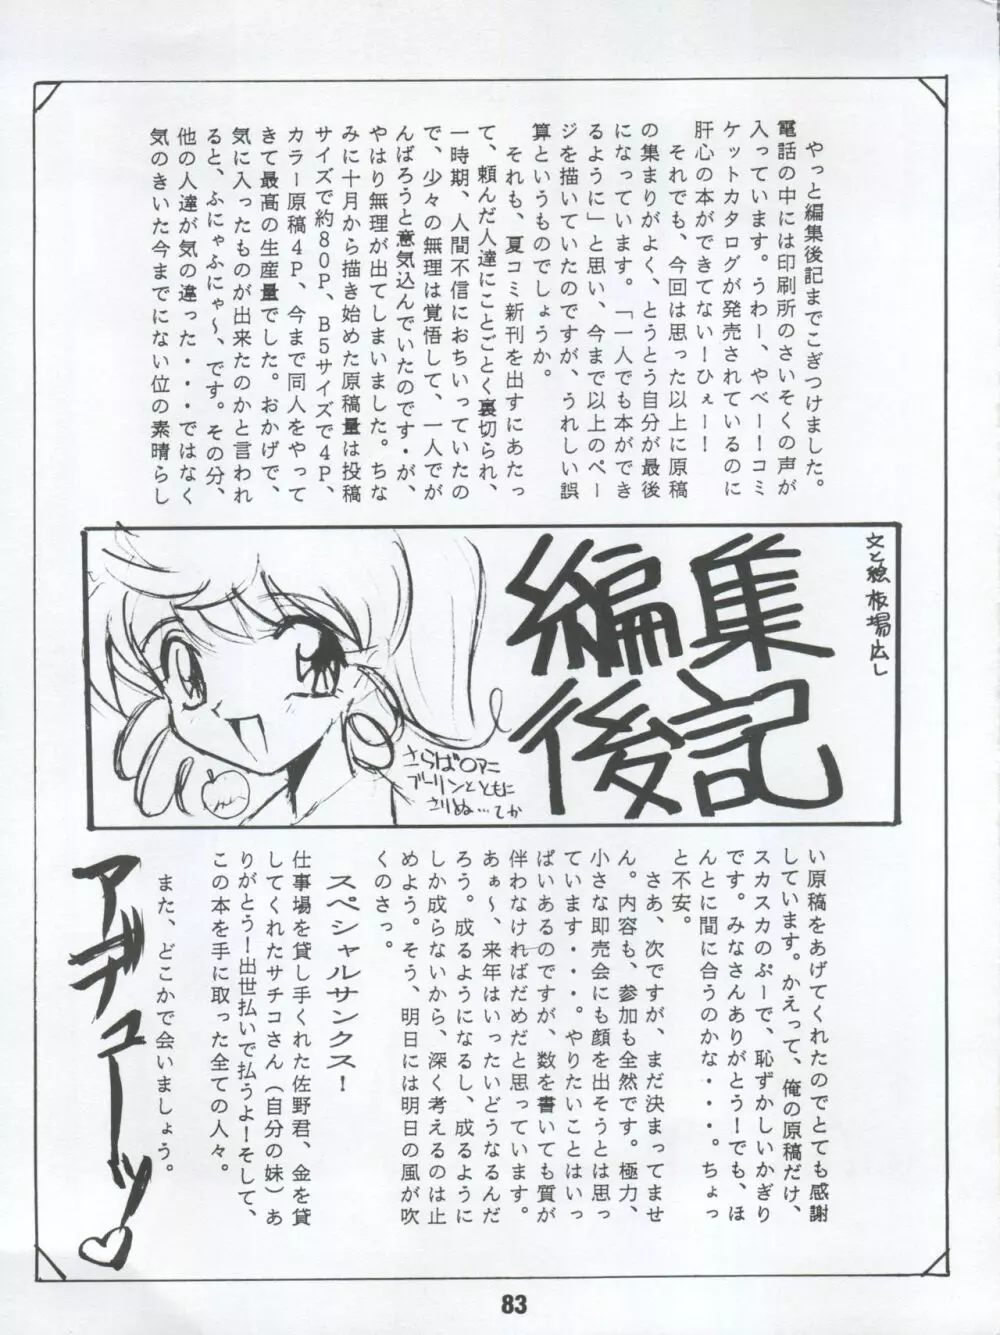 やっと編集後記までこぎつけました。
電話の中には印刷所のさいそくの声が
入っています。うわー、やべー！コミ
ケットカタログが発売されているのに
肝心の本ができてない！ひぇー！
それでも、今回は思った以上に原稿
の集まりがよく、とうとう自分が最後
になっています。「一人でも本ができ
るように」と思い、今まで以上のペー
ジを描いていたのですが、うれしい誤
算というものでしょうか。
それも、夏コミ新刊を出すにあたっ
て、頼んだ人達にことごとく裏切られ、
一時期、人間不信におちいっていたの
で、少々の無理は覚悟して、一人でが
んばろうと意気込んでいたのです・が、
やはり無理が出てしまいました。ちな
みに十月から描き始めた原稿量は投稿
サイズで約８０Ｐ、Ｂ５サイズで４Ｐ、
カラー原稿４Ｐ、今まで同人をやって
きて最高の生産量でした。おかげで、
気に入ったものが出来たのかと言われ
ると、ふにゃふにゃ～、です。その分、
他の人達が気の違った・・・ではなく
気のきいた今までにない位の素晴らし
文と絵 板場広し
編集
後記
さらば〇アニ
プーリンとともに
さりぬ…てか
い原稿をあげてくれたのでとても感謝
しています。かえって、俺の原稿だけ、
スカスカのぷーで、恥ずかしいかぎり
です。みなさんありがとう！でも、ほ
んとに間に合うのかな・・・。ちょっ
と不安。
さあ、次ですが、まだ決まってませ
ん。内容も、参加も全然です。極力、
小さな即売会にも顔を出そうとは思っ
ています・・・。やりたいことはいっ
ぱいあるのですが、数を書いても質が
伴わなければだめだと思っています。
あぁ～、来年はいったいどうなるんだ
ろう。成るようになるし、成るように
しか成らないから、深く考えるのは止
めよう。そう、明日には明日の風が吹
くのさっ。
スペシャルサンクス！
仕事場を貸し手くれた佐野君、金を貸
してくれたサチコさん（自分の妹）あ
りがとう！出世払いで払うよ！そして、
この本を手に取った全ての人々。
また、どこかで会いましょう。
アデューッ♡
83